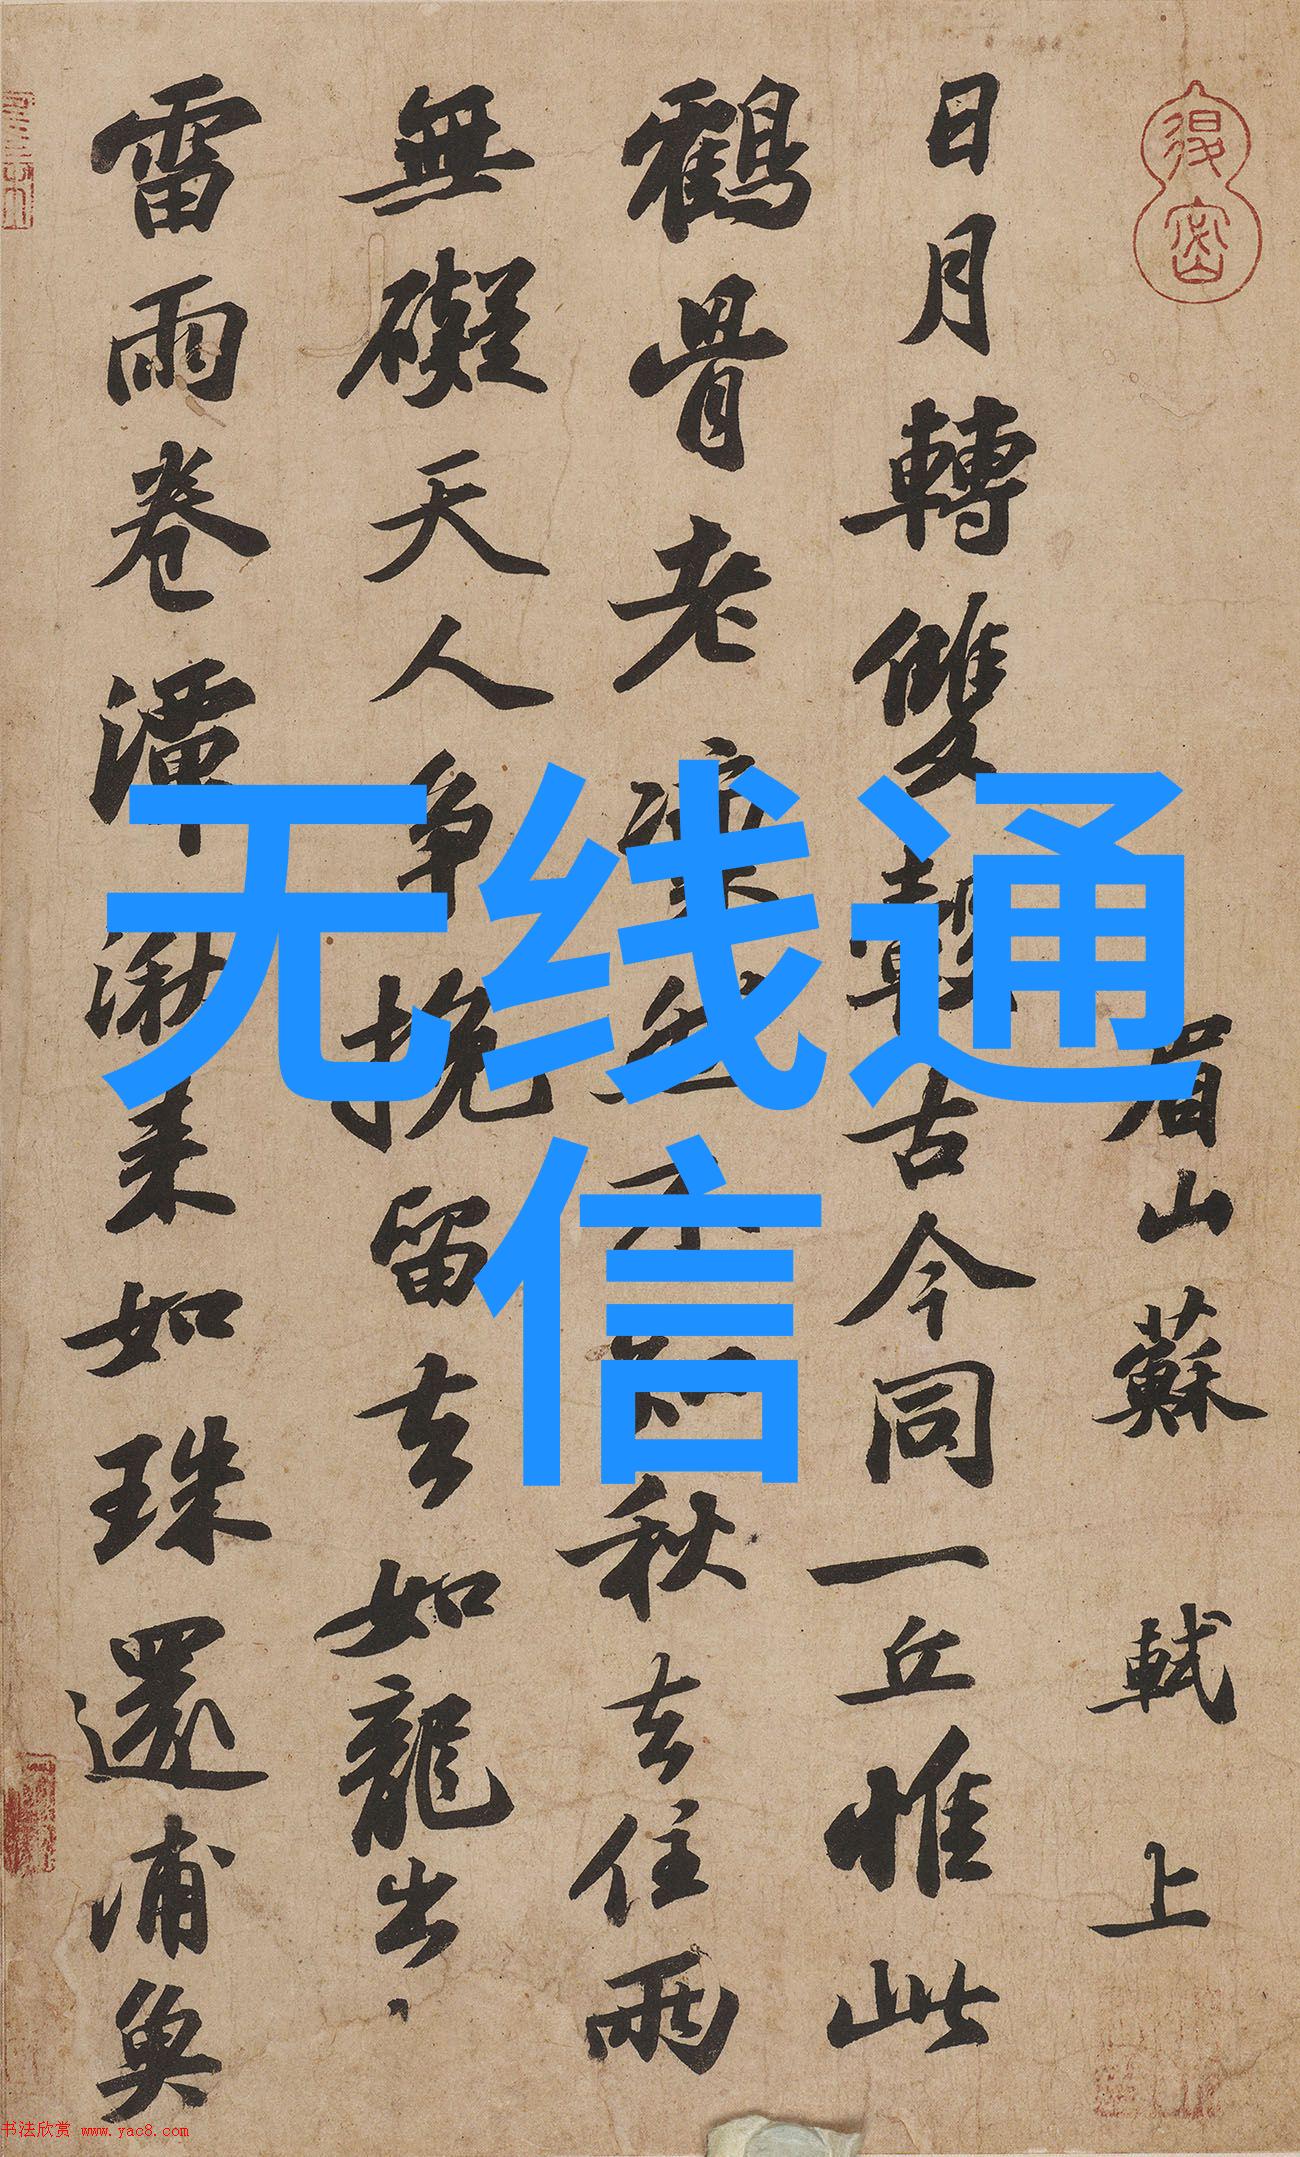 眉山蘇軾上
日月轉雙轂古今同一丘惟此
鶴骨老凜然不知秋去住兩
無礙天人爭挽留去如龍出
雷雨卷潭湫來如珠還浦魚
復
无线通
信
书法欣赏 www.yac8.com